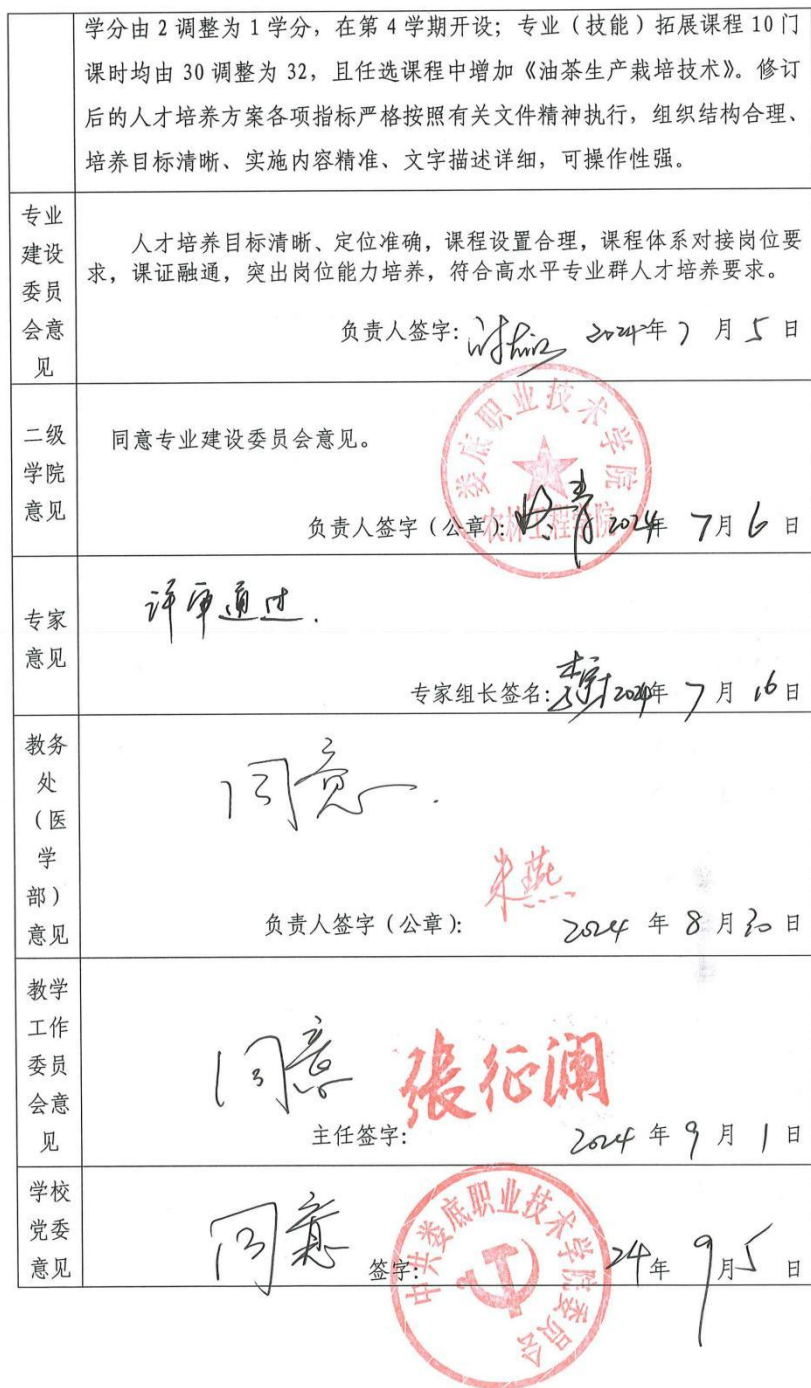 学分由 2 调整为 1 学分，在第 4 学期开设；专业（技能）拓展课程 10 门
课时均由 30 调整为 32，且任选课程中增加《油茶生产栽培技术》。修订
后的人才培养方案各项指标严格按照有关文件精神执行，组织结构合理、
培养目标清晰、实施内容精准、文字描述详细，可操作性强。
专业
建设
委员
会意
见
人才培养目标清晰、定位准确，课程设置合理，课程体系对接岗位要
求，课证融通，突出岗位能力培养，符合高水平专业群人才培养要求。
负责人签字： 2024年 7 月 5 日
二级
学院
意见
同意专业建设委员会意见。
娄底职业技术学院
农林工程学院
负责人签字（公章）： 2024年 7月 6 日
专家
意见
评审通过.
专家组长签名: 2024年 7 月 16 日
教务
处
（医
学
部）
意见
同意.
朱燕
负责人签字（公章）： 2024 年 8 月 30 日
教学
工作
委员
会意
见
同意 張征澜
主任签字： 2024 年 9 月 1 日
学校
党委
意见
同意
中共娄底职业技术学院委员会
签字： 24年 9月5 日